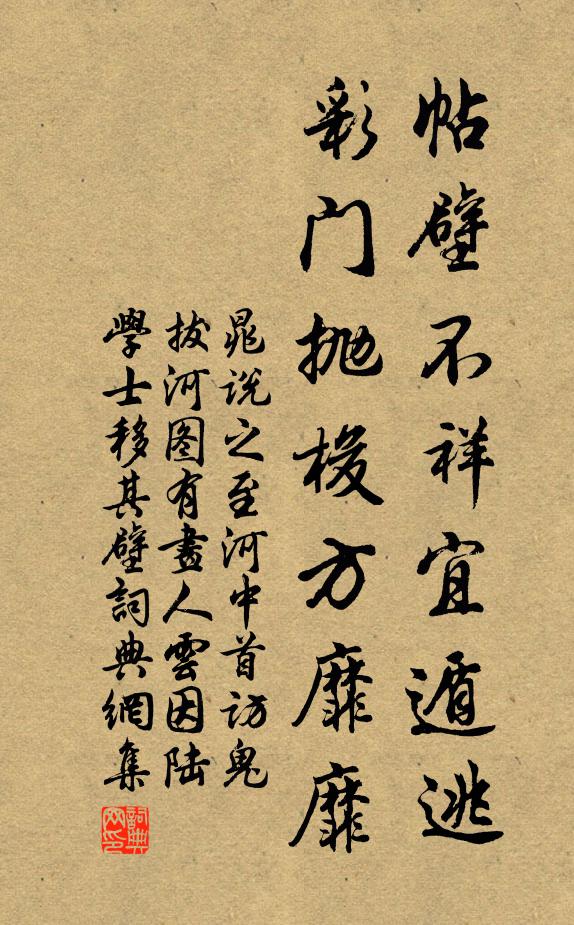 帖壁不祥宜遁逃
彩门抛梭方靡靡
晁说之至河中首访鬼
拔河图有畫人雲因陆
學士移其壁詞典網集
詞典网印